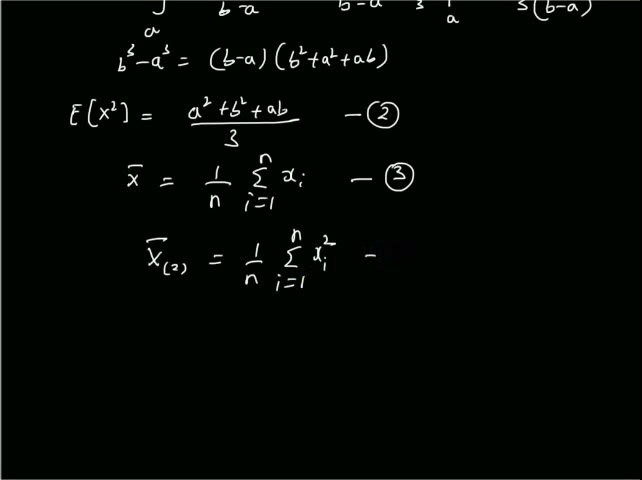 ∫ₐ b-a b-a 3 |ₐ 3(b-a)
b³-a³ = (b-a) (b²+a²+ab)
E[X²] = (a²+b²+ab)/3 - ②
x̄ = 1/n Σ_{i=1}^{n} xᵢ - ③
X̄₍₂₎ = 1/n Σ_{i=1}^{n} xᵢ² -